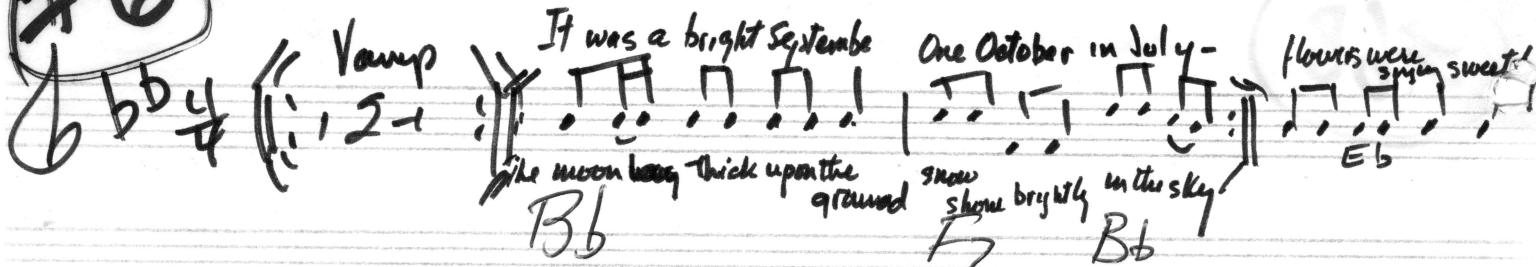 #6
Vamp
It was a bright Septembe
One October in July -
flowers were
singing sweet
4
4
2
The moon
thick upon the
ground
snow
shone brightly
in the sky
Eb
Bb
F
Bb